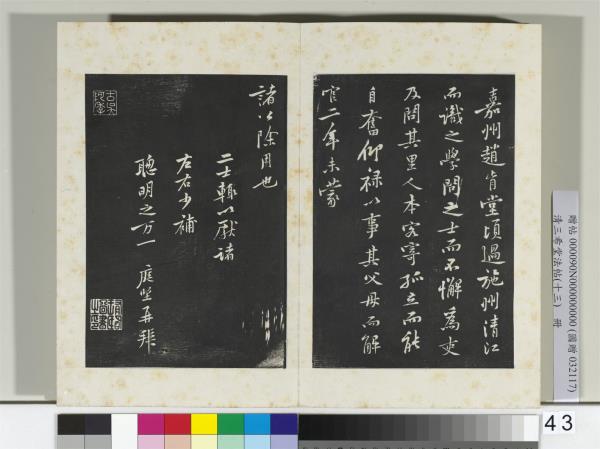 嘉州趙肯堂頃過施州清江
而識之學問之士而不懈為吏
及問其里人本宛寄孤立而能
自奮仰祿以事其父母而解
官二年未蒙
諸公除用也
二士輒以獻諸
左右少補
聰明之万一 庭堅再拜
贈帖 000090N000000000 (國贈 032117)
清三希堂法帖(十三) 冊
43